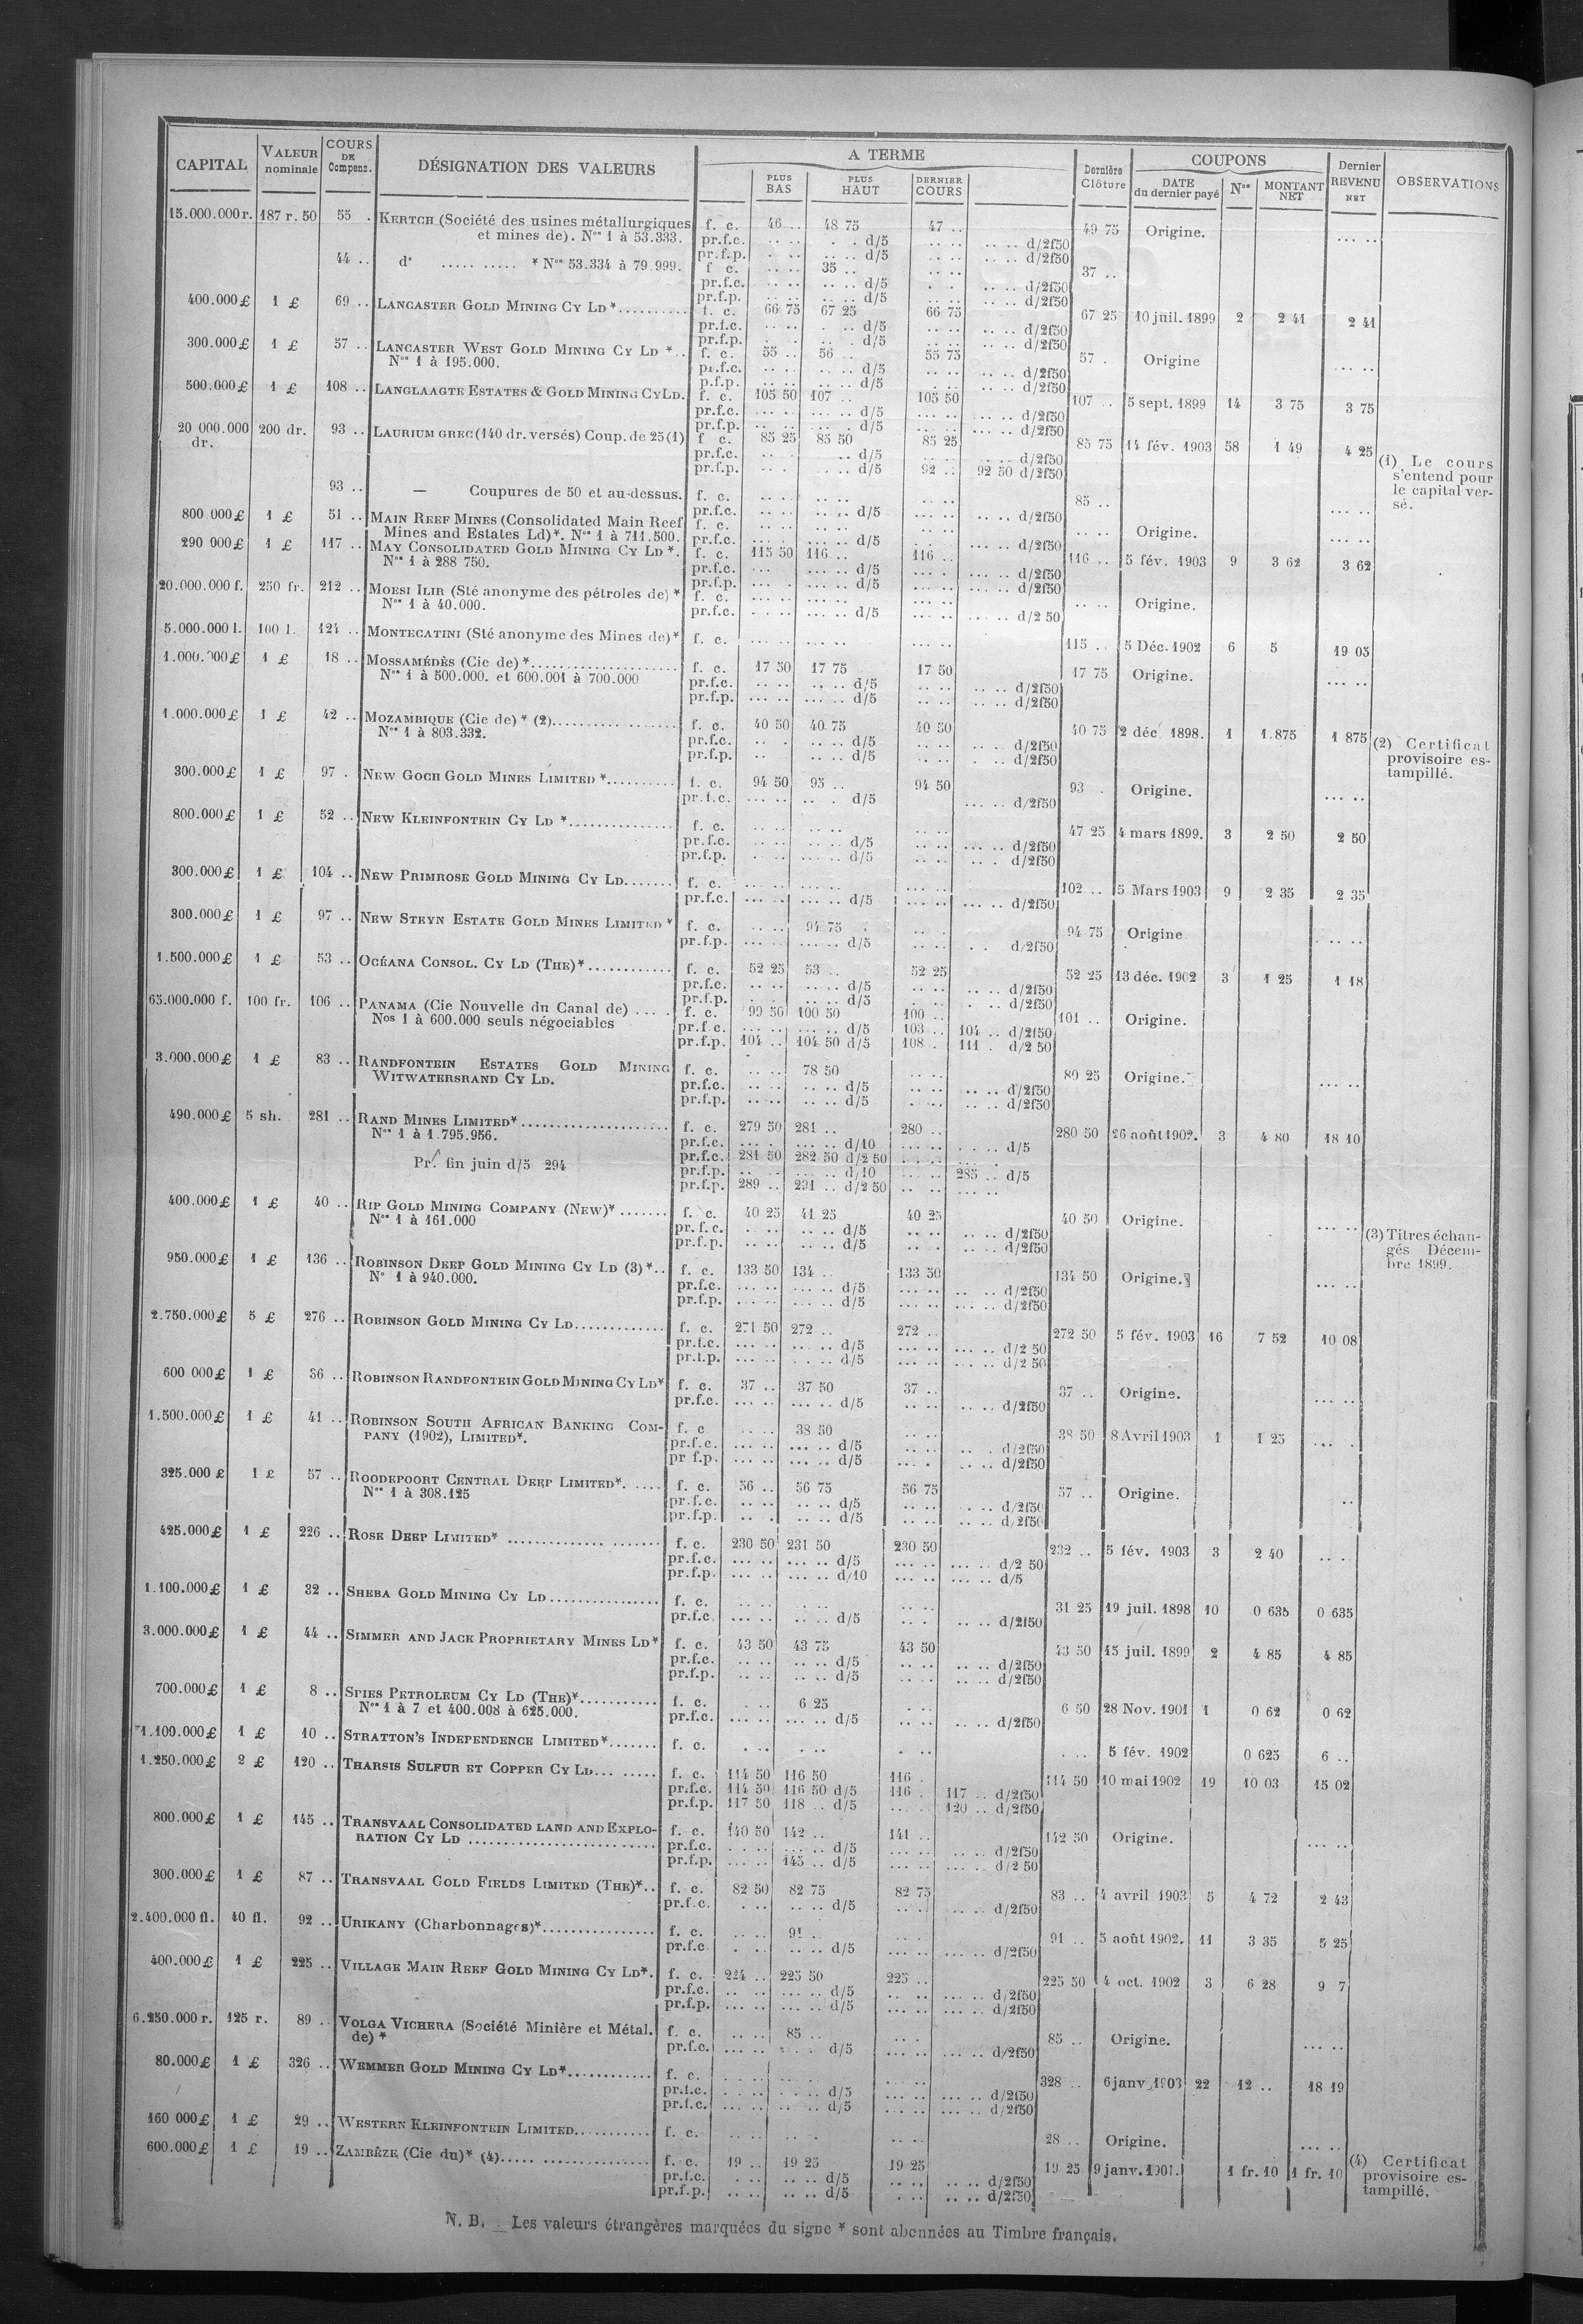 CAPITAL VALEUR nominale COURS DE Compens. DÉSIGNATION DES VALEURS A TERME Dernière Clôture COUPONS Dernier REVENU NET OBSERVATIONS
PLUS BAS PLUS HAUT DERNIER COURS DATE du dernier payé Nos MONTANT NET
15.000.000 r. 187 r. 50 55 . KERTCH (Société des usines métallurgiques f. c. 46 .. 48 75 47 .. 49 75 Origine. ... ..
et mines de). Nos 1 à 53.333. pr.f.c. .. .. . . d/5 .. .. .. .. d/2f50
pr.f.p. .. .. d/5 .. .. .. .. d/2f50
44 .. d° ..... ..... * Nos 53.334 à 79.999. f c. .. .. 35 .. .. .. 37 ..
pr.f.c. .. .. .. .. d/5 . . .. .. d/2f50
pr.f.p. .. .. .. .. d/5 .. .. .. .. d/2f50
400.000 £ 1 £ 69 .. LANCASTER GOLD MINING CY LD * .......... f. c. 66 75 67 25 66 75 67 25 10 juil. 1899 2 2 41 2 41
pr.f.c. .. .. . .. d/5 .. .. .. .. d/2f50
pr.f.p. . . . . d/5 .. .. .. .. d/2f50
300.000 £ 1 £ 57 .. LANCASTER WEST GOLD MINING CY LD *.. f. c. 55 .. 56 .. 55 75 57 . Origine ... ..
Nos 1 à 195.000. pr.f.c. .. .. .. .. d/5 .. .. .. .. d/2f50
p.f.p. .. .. .. .. d/5 . .. .. .. d/2f50
500.000 £ 1 £ 108 .. LANGLAAGTE ESTATES & GOLD MINING CY LD. f. c. 105 50 107 .. 105 50 107 .. 5 sept. 1899 14 3 75 3 75
pr.f.c. ... .. ... .. d/5 ... .. ... .. d/2f50
pr.f.p. .. .. . .. d/5 ... .. ... .. d/2f50
20 000.000 dr. 200 dr. 93 .. LAURIUM GREC (140 dr. versés) Coup. de 25 (1) f c. 85 25 85 50 85 25 85 75 14 fév. 1903 58 1 49 4 25
pr.f.c. .. . .. d/5 .. .. .. .. d/2f50
pr.f.p. .. . .. .. d/5 92 .. 92 50 d/2f50
(1) Le cours
s'entend pour
le capital ver-
sé.
93 .. — Coupures de 50 et au-dessus. f. c. .. .. .. .. .. .. 85 ..
pr.f.c. .. .. .. .. d/5 .. .. .. .. d/2f50
800 000 £ 1 £ 51 .. MAIN REEF MINES (Consolidated Main Reef f. c. .. .. .. .. .. .. .. .. Origine. ... ..
Mines and Estates Ld)*. Nos 1 à 711.500. pr.f.c. ... . ... .. d/5 .. .. ... .. d/2f50
290 000 £ 1 £ 117 .. MAY CONSOLIDATED GOLD MINING CY LD *. f. c. 115 50 116 .. 116 .. 116 .. 5 fév. 1903 9 3 62 3 62
Nos 1 à 288 750. pr.f.c. ... ... .. d/5 ... . ... .. d/2f50
pr.f.p. ... . ... .. d/5 ... .. ... .. d/2f50
20.000.000 f. 250 fr. 212 .. MOESI ILIR (Sté anonyme des pétroles de) * f. c. ... .. ... .. ... .. .. .. Origine.
Nos 1 à 40.000. pr.f.c. . .. .. ... .. d/5 ... .. d/2 50
5.000.000 l. 100 l. 124 .. MONTECATINI (Sté anonyme des Mines de)* f. c. ... .. ... .. ... .. 115 .. 5 Déc. 1902 6 5 19 05
1.000.000 £ 1 £ 18 .. MOSSAMÉDÈS (Cie de) *.................... f. c. 17 50 17 75 17 50 17 75 Origine. ... ..
Nos 1 à 500.000. et 600.001 à 700.000 pr.f.c. .. .. .. .. d/5 .. .. .. .. d/2f50
pr.f.p. ... .. ... .. d/5 .. .. .. .. d/2f50
1.000.000 £ 1 £ 42 .. MOZAMBIQUE (Cie de) * (2)................. f. c. 40 50 40.75 40 50 40 75 2 déc. 1898. 1 1.875 1 875
Nos 1 à 803.332. pr.f.c. .. . .. .. d/5 .. .. .. .. d/2f50
pr.f.p. .. .. .. d/5 .. .. . .. d/2f50
(2) Certificat
provisoire es-
tampillé.
300.000 £ 1 £ 97 . NEW GOCH GOLD MINES LIMITED *.......... f. c. 94 50 95 .. 94 50 93 . Origine. ... ..
pr.f.c. ... .. .. . d/5 ... .. d/2f50
800.000 £ 1 £ 52 .. NEW KLEINFONTEIN CY LD *............... f. c. .. .. .. .. .. .. 47 25 4 mars 1899. 3 2 50 2 50
pr.f.c. .. .. ... .. d/5 .. .. ... .. d/2f50
pr.f.p. . .. ... .. d/5 .. .. .. . d/2f50
300.000 £ 1 £ 104 .. NEW PRIMROSE GOLD MINING CY LD....... f. c. ... .. ... .. ... .. 102 .. 5 Mars 1903 9 2 35 2 35
pr.f.c. ... .. ... .. d/5 ... .. ... .. d/2f50
300.000 £ 1 £ 97 .. NEW STEYN ESTATE GOLD MINES LIMITED * f. c. .. .. 94 75 .. . 94 75 Origine . .. ..
pr.f.p. ... .. ... .. d/5 .. .. . . d/2f50
1.500.000 £ 1 £ 53 .. OCÉANA CONSOL. CY LD (THE)*............ f. c. 52 25 53 .. 52 25 52 25 13 déc. 1902 3 1 25 1 18
pr.f.c. .. .. .. .. d/5 .. .. .. .. d/2f50
pr.f.p. . . .. .. d/5 . . . .. d/2f50
65.000.000 f. 100 fr. 106 .. PANAMA (Cie Nouvelle du Canal de) .... . f. c. 99 50 100 50 100 .. 101 .. Origine.
Nos 1 à 600.000 seuls négociables pr.f.c. ... .. ... .. d/5 103 .. 104 .. d/2f50
pr.f.p. 104 .. 104 50 d/5 108 . 111 . d/2 50
3.000.000 £ 1 £ 83 .. RANDFONTEIN ESTATES GOLD MINING f. c. . .. 78 50 .. .. 80 25 Origine. ... ..
WITWATERSRAND CY LD. pr.f.c. .. .. .. .. d/5 .. .. .. .. d/2f50
pr.f.p. .. .. .. .. d/5 .. .. .. .. d/2f50
490.000 £ 5 sh. 281 .. RAND MINES LIMITED*..................... f. c. 279 50 281 .. 280 .. 280 50 26 août 1902. 3 4 80 18 10
Nos 1 à 1.795.956. pr.f.c. ... . ... .. d/10 ... .. . .. d/5
pr.f.c. 281 50 282 50 d/2 50 ... ..
Pr. fin juin d/5 294 pr.f.p. .. .. ... .. d/10 ... .. 285 .. d/5
pr.f.p. 289 .. 291 .. d/2 50 .. .. ... ..
400.000 £ 1 £ 40 .. RIP GOLD MINING COMPANY (NEW)* ....... f. c. 40 25 41 25 40 25 40 50 Origine. ... ..
Nos 1 à 161.000 pr.f.c. . .. .. .. d/5 .. .. .. .. d/2f50
pr.f.p. .. .. .. .. d/5 .. . .. .. d/2f50
(3) Titres échan-
gés Décem-
bre 1899.
950.000 £ 1 £ 136 .. ROBINSON DEEP GOLD MINING CY LD (3) *.. f. c. 133 50 134 .. 133 50 134 50 Origine. ... ..
N° 1 à 940.000. pr.f.c. ... .. ... .. d/5 ... .. .. .. d/2f50
pr.f.p. ... .. ... .. d/5 ... .. ... .. d/2f50
2.750.000 £ 5 £ 276 .. ROBINSON GOLD MINING CY LD............. f. c. 271 50 272 .. 272 .. 272 50 5 fév. 1903 16 7 52 10 08
pr.f.c. ... .. ... .. d/5 ... .. ... .. d/2 50
pr.f.p. ... .. . .. d/5 ... .. ... .. d/2 50
600 000 £ 1 £ 36 .. ROBINSON RANDFONTEIN GOLD MINING CY LD* f. c. 37 .. 37 50 37 .. 37 .. Origine. ... ..
pr.f.c. ... .. ... .. d/5 .. .. .. .. d/2f50
1.500.000 £ 1 £ 41 .. ROBINSON SOUTH AFRICAN BANKING COM- f. c .. .. 38 50 .. .. 38 50 8 Avril 1903 1 1 25 ... .
PANY (1902), LIMITED*. pr.f.c. ... .. ... .. d/5 .. .. .. . d/2f50
pr f.p. ... .. ... .. d/5 ... . ... .. d/2f50
325.000 £ 1 £ 57 .. ROODEPOORT CENTRAL DEEP LIMITED*. ..... f. c. 56 .. 56 75 56 75 57 .. Origine. ..
Nos 1 à 308.125 pr.f.c. .. .. .. .. d/5 .. .. . .. d/2f50
pr.f.p. .. . .. .. d/5 .. .. .. .. d/2f50
425.000 £ 1 £ 226 .. ROSE DEEP LIMITED* .............. ....... f. c. 230 50 231 50 230 50 232 .. 5 fév. 1903 3 2 40 .. ..
pr.f.c. ... .. ... .. d/5 ... .. ... .. d/2 50
pr.f.p. ... .. ... .. d/10 ... .. ... .. d/5
1.100.000 £ 1 £ 32 .. SHEBA GOLD MINING CY LD................ f. c. .. .. . .. .. .. 31 25 19 juil. 1898 10 0 635 0 635
pr.f.c. ... .. .. .. d/5 .. . .. .. d/2f50
3.000.000 £ 1 £ 44 .. SIMMER AND JACK PROPRIETARY MINES LD* f. c. 43 50 43 75 43 50 43 50 15 juil. 1899 2 4 85 4 85
pr.f.c. .. .. .. .. d/5 .. .. .. .. d/2f50
pr.f.p. .. .. .. .. d/5 .. .. .. .. d/2f50
700.000 £ 1 £ 8 .. SPIES PETROLEUM CY LD (THE)*........... f. c. . .. 6 25 . .. 6 50 28 Nov. 1901 1 0 62 0 62
Nos 1 à 7 et 400.008 à 625.000. pr.f.c. ... .. ... .. d/5 .. .. .. .. d/2f50
1.100.000 £ 1 £ 10 .. STRATTON'S INDEPENDENCE LIMITED*....... f. c. . .. .. .. . .. . .. 5 fév. 1902 0 625 6 ..
1.250.000 £ 2 £ 120 .. THARSIS SULFUR ET COPPER CY LD... ..... f. c. 114 50 116 50 116 . 114 50 10 mai 1902 19 10 03 15 02
pr.f.c. 114 50 116 50 d/5 116 . 117 .. d/2f50
pr.f.p. 117 50 118 .. d/5 ... . 120 .. d/2f50
800.000 £ 1 £ 145 .. TRANSVAAL CONSOLIDATED LAND AND EXPLO- f. c. 140 50 142 .. 141 .. 142 50 Origine. ... ..
RATION CY LD ........................... pr.f.c. . .. .. ... .. d/5 ... .. .. .. d/2f50
pr.f.p. ... .. 145 .. d/5 ... .. ... .. d/2 50
300.000 £ 1 £ 87 .. TRANSVAAL GOLD FIELDS LIMITED (THE)*.. f. c. 82 50 82 75 82 75 83 .. 4 avril 1903 5 4 72 2 43
pr.f.c. . .. .. .. d/5 .. .. .. .. d/2f50
2.400.000 fl. 40 fl. 92 .. URIKANY (Charbonnages)*................ f. c. .. .. 91 .. . .. 91 .. 5 août 1902. 11 3 35 5 25
pr.f.c . .. .. .. d/5 ... .. ... .. d/2f50
400.000 £ 1 £ 225 .. VILLAGE MAIN REEF GOLD MINING CY LD*. f. c. 224 .. 225 50 225 .. 225 50 4 oct. 1902 3 6 28 9 7
pr.f.c. .. .. ... .. d/5 .. .. ... .. d/2f50
pr.f.p. ... .. ... .. d/5 ... .. ... .. d/2f50
6.250.000 r. 125 r. 89 .. VOLGA VICHERA (Société Minière et Métal. f. c. .. .. 85 .. .. . 85 .. Origine. ... ..
de) * pr.f.c. ... .. .. . d/5 ... .. ... .. d/2f50
80.000 £ 1 £ 326 .. WEMMER GOLD MINING CY LD*............. f. c. . .. .. .. .. 328 .. 6 janv 1903 22 12 .. 18 19
pr.f.c. . .. .. . .. d/5 ... .. ... .. d/2f50
pr.f.c. ... .. ... .. d/5 ... .. ... .. d/2f50
160 000 £ 1 £ 29 .. WESTERN KLEINFONTEIN LIMITED............ f. c. .. .. .. . .. .. 28 .. Origine. ... ..
600.000 £ 1 £ 19 .. ZAMBÈZE (Cie du)* (4)..... ................ f. c. 19 .. 19 25 19 25 19 25 9 janv. 1901. 1 fr. 10 1 fr. 10
pr.f.c. . .. .. .. d/5 .. .. .. .. d/2f50
pr.f.p. .. .. .. .. d/5 . .. .. .. d/2f50
(4) Certificat
provisoire es-
tampillé.
N. B. — Les valeurs étrangères marquées du signe * sont abonnées au Timbre français.